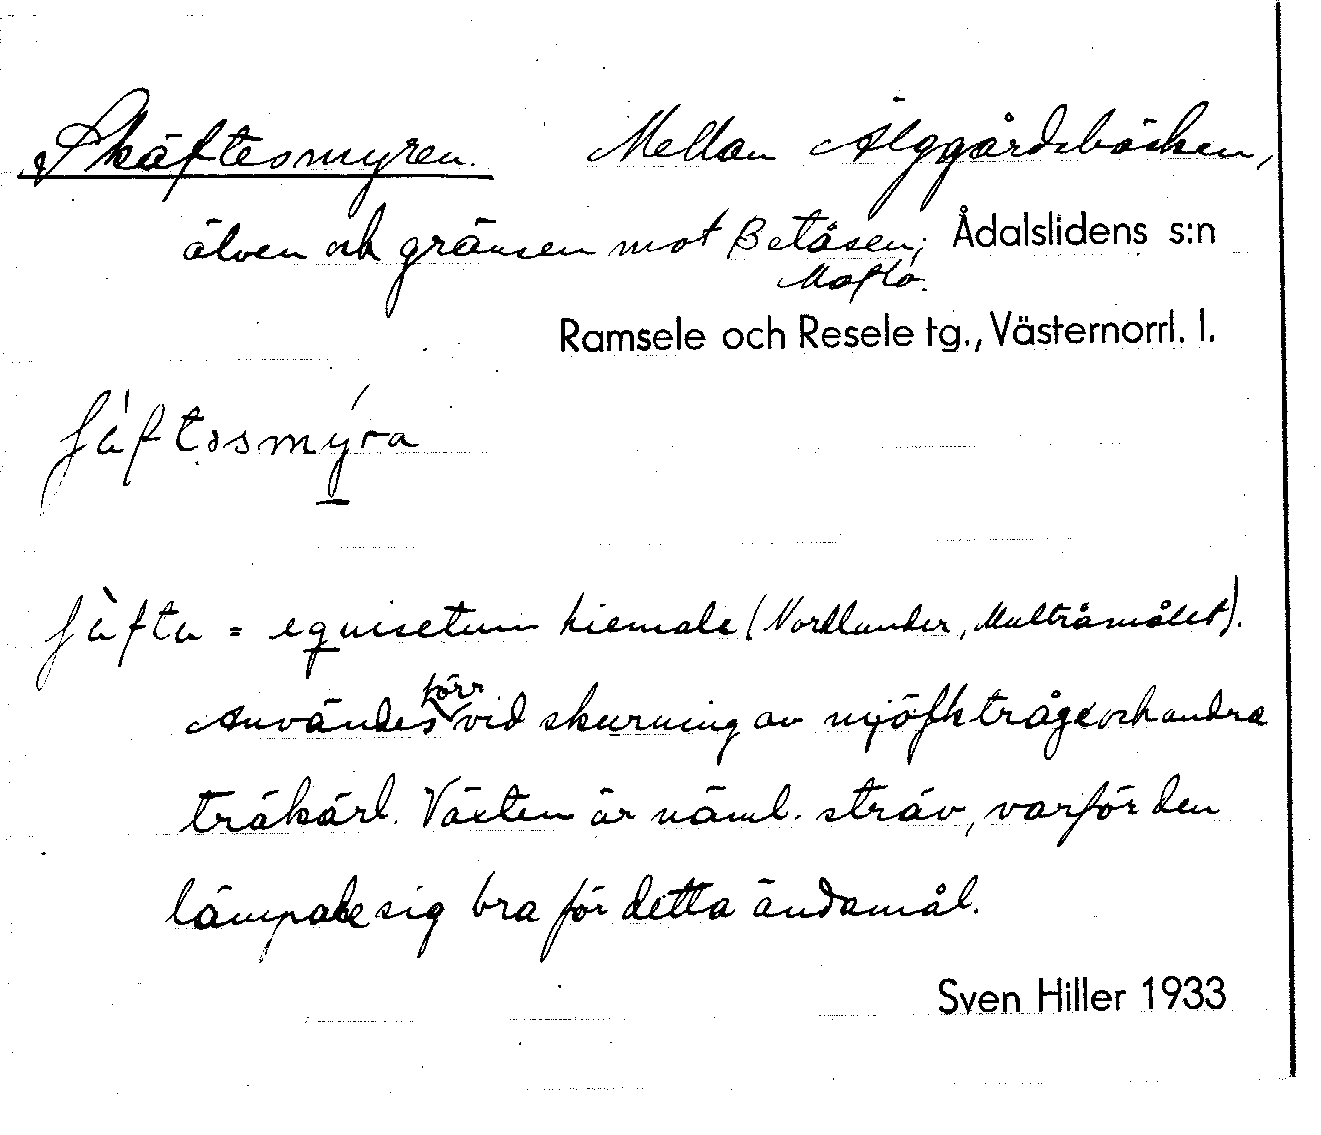 Skäftesmyren. Mellan Älggårdsbäcken,
älven och gränsen mot Betåsen; Ådalslidens s:n
Moflo.
Ramsele och Resele tg., Västernorrl. l.
ʃàftəsmýra
ʃàfta = equisetum hiemale (Nordlander, Multråmålet).
törr
Användes vid skurning av mjölktråg och andra
träkärl. Växten är näml. sträv, varför den
lämpade sig bra för detta ändamål.
Sven Hiller 1933